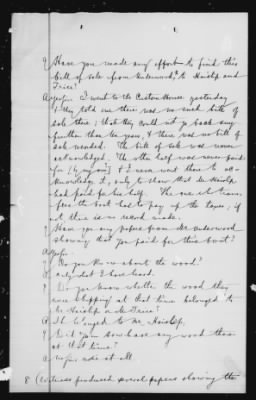 Q Have you made any effort to find this
bill of sale from Underwood, to Haislip and
Trice?
A Yes sir. I went to the Custom House yesterday
& they told me there was no such bill of
sale there; that they could not go back any
further than ten years, & there was no bill of
sale recorded. The bill of sale was never
acknowledged. The other half was never paid
for by me & I never went there to ac-
knowledge it, only to show that Mr Haislip
had paid for his half. The one it trans-
fers the boat has to pay up the taxes; if
it there is no record made.
Q Have you any papers from Mr. Underwood
showing that you paid for this boat?
A No sir.
Q Do you know about the wood?
A Only what I have heard.
Q Do you know whether the wood they
were shipping at that time belonged to
Mr Haislip or Mr Trice?
A It belonged to Mr. Haislip.
Q Did you have any wood there
at that time?
A No sir, none at all.
8 (Witness produced several papers showing the